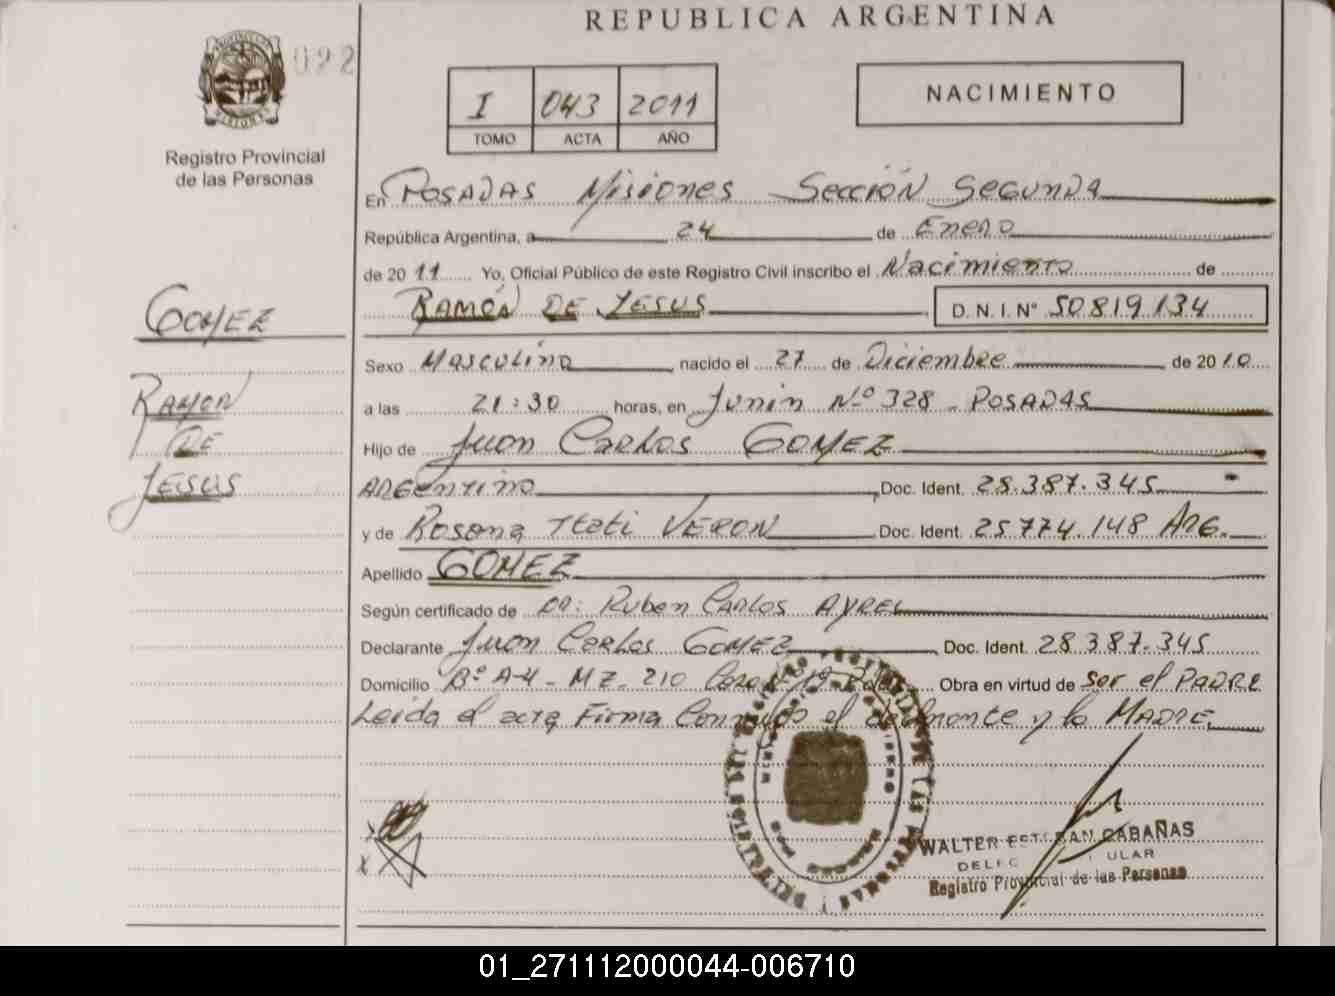 REPUBLICA ARGENTINA
092
I 043 2011
TOMO ACTA AÑO
NACIMIENTO
Registro Provincial
de las Personas
En POSADAS Misiones Sección Segunda
República Argentina, a 24 de Enero
de 2011 Yo, Oficial Público de este Registro Civil inscribo el Nacimiento de
RAMÓN DE JESUS D.N.I. Nº 50819134
GOMEZ
Sexo Masculino nacido el 27 de Diciembre de 2010
RAMON
DE
JESUS
a las 21:30 horas, en Junin Nº 328 - POSADAS
Hijo de Juan Carlos GOMEZ
ARGENTINO Doc. Ident. 28.387.345
y de Rosana Itati VERON Doc. Ident. 25.774.148 ARG.
Apellido GOMEZ
Según certificado de DR: Ruben Carlos AYREL
Declarante Juan Carlos GOMEZ Doc. Ident. 28.387.345
Domicilio Bº A-4 - MZ- 210 Obra en virtud de Ser el PADRE
Leida el acta Firma el y la MADRE
WALTER ESTEBAN CABAÑAS
Registro Provincial de las Personas
01_271112000044-006710